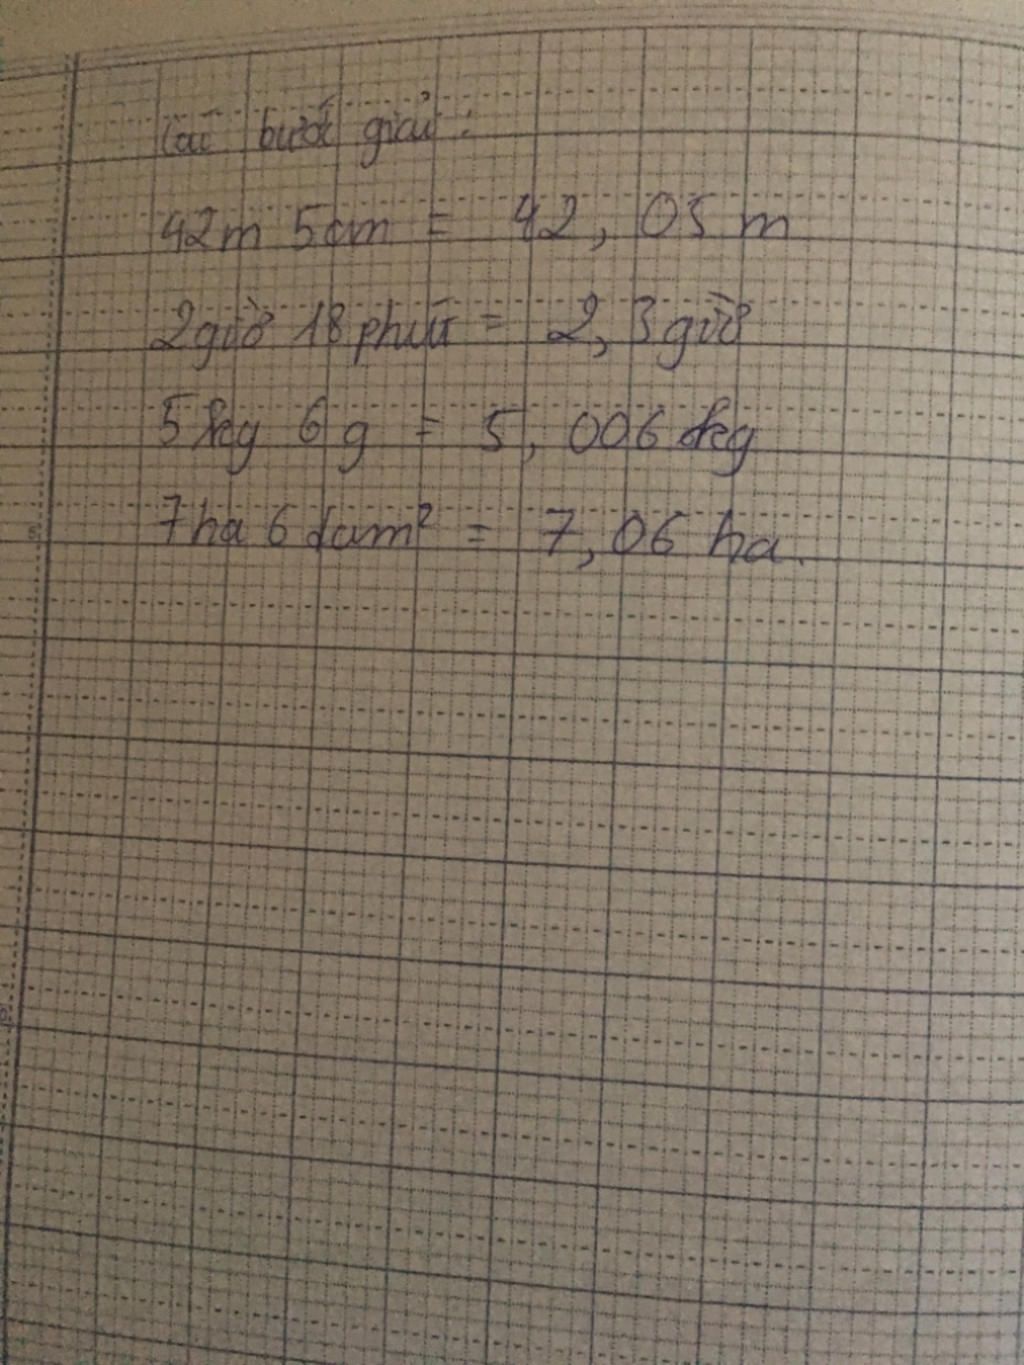 Các bước giải :
42m 5cm = 42, 05 m
2 giờ 18 phút = 2, 3 giờ
5 kg 6 g = 5, 006 kg
7 ha 6 dam² = 7, 06 ha.